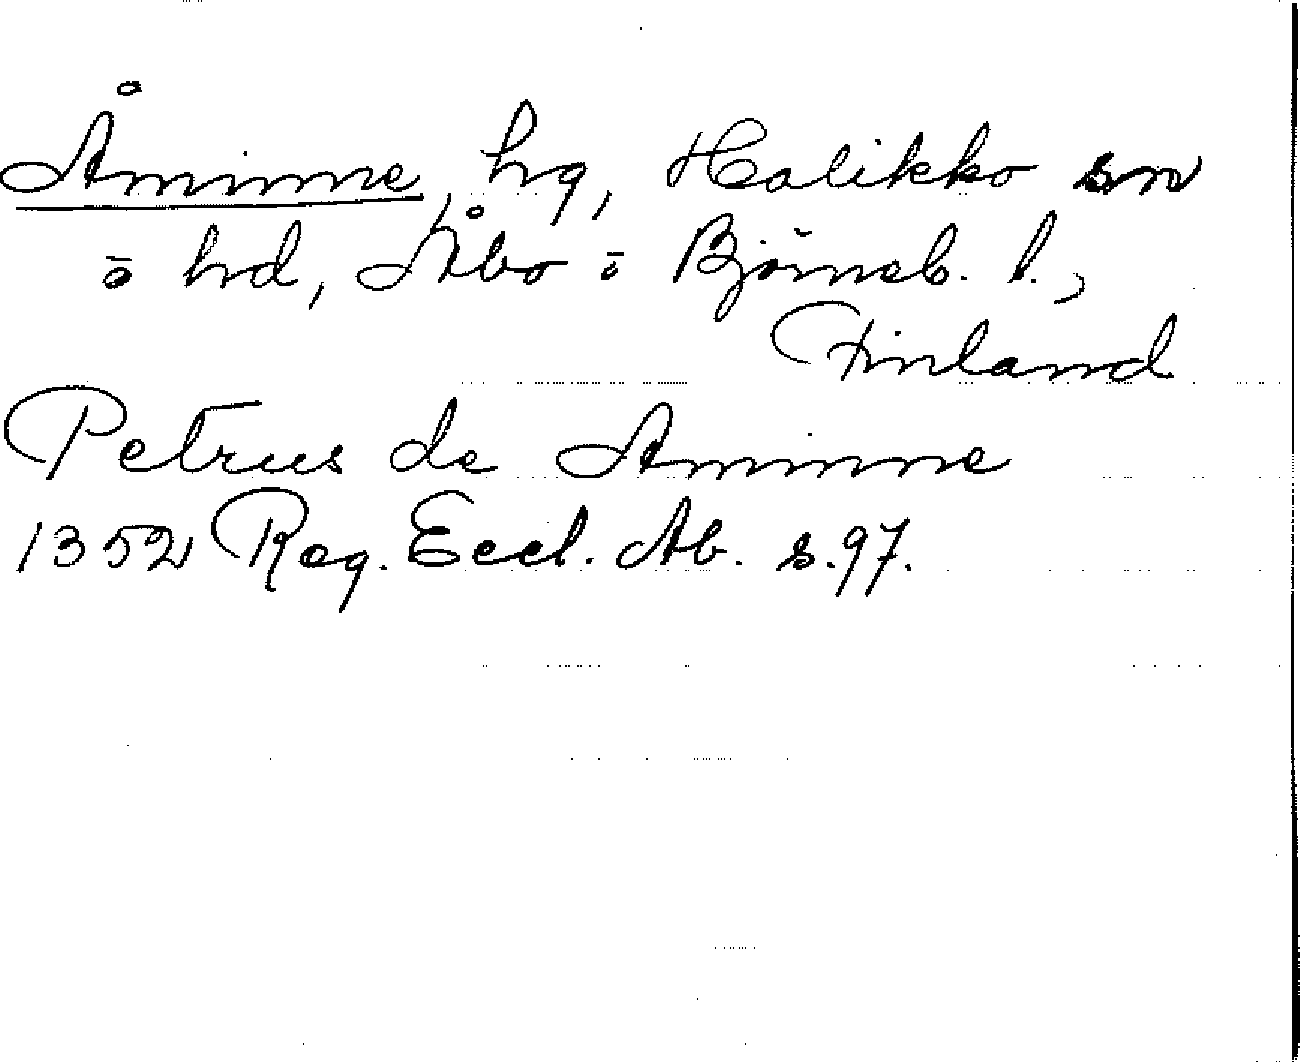 Åminne, hg, Halikko sn
o hd, Åbo o Björneb. l.,
Finland
Petrus de Aminne
1352 Reg. Eccl. Ab. s. 97.